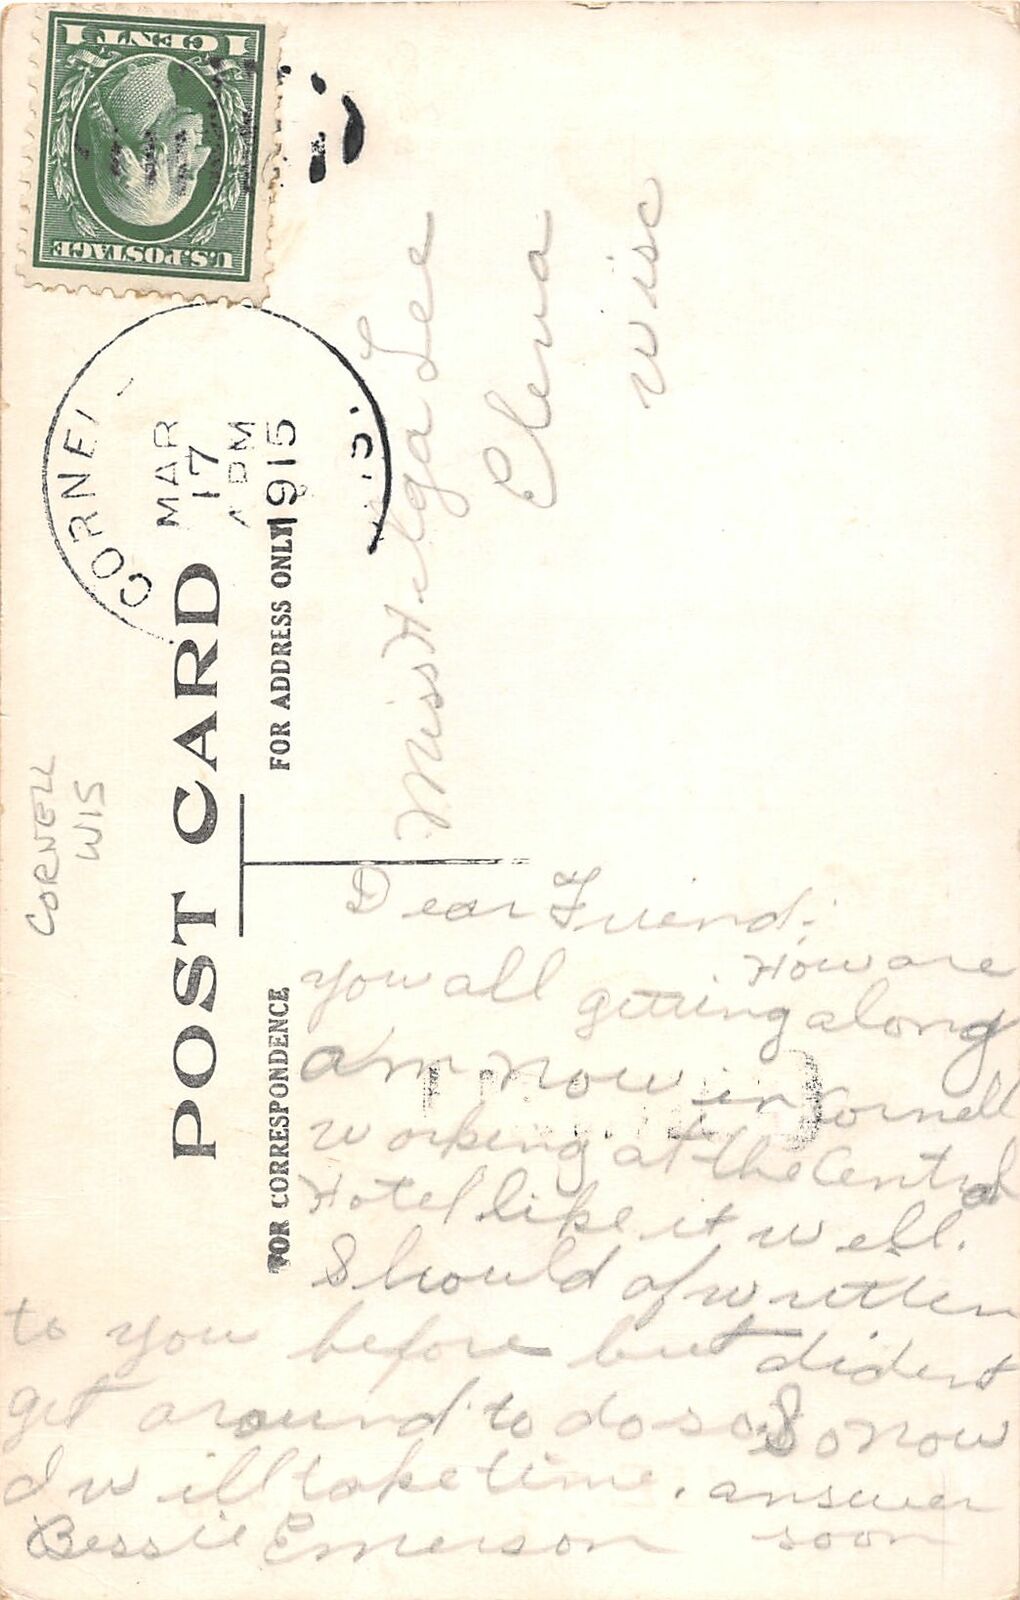 1 CENT 1
U.S. POSTAGE
CORNEL
MAR
17
PM
1915
WIS.
CORNELL
WIS
POST CARD
FOR CORRESPONDENCE
FOR ADDRESS ONLY
Miss Hilga Lee
Eleva
Wisc
Dear Friend;
How are
you all getting along
am now in Cornell
working at the Central
Hotel like it well.
Should of written
to you before but dident
get around to do so. So now
I will take time. answer
Bessie Emerson soon